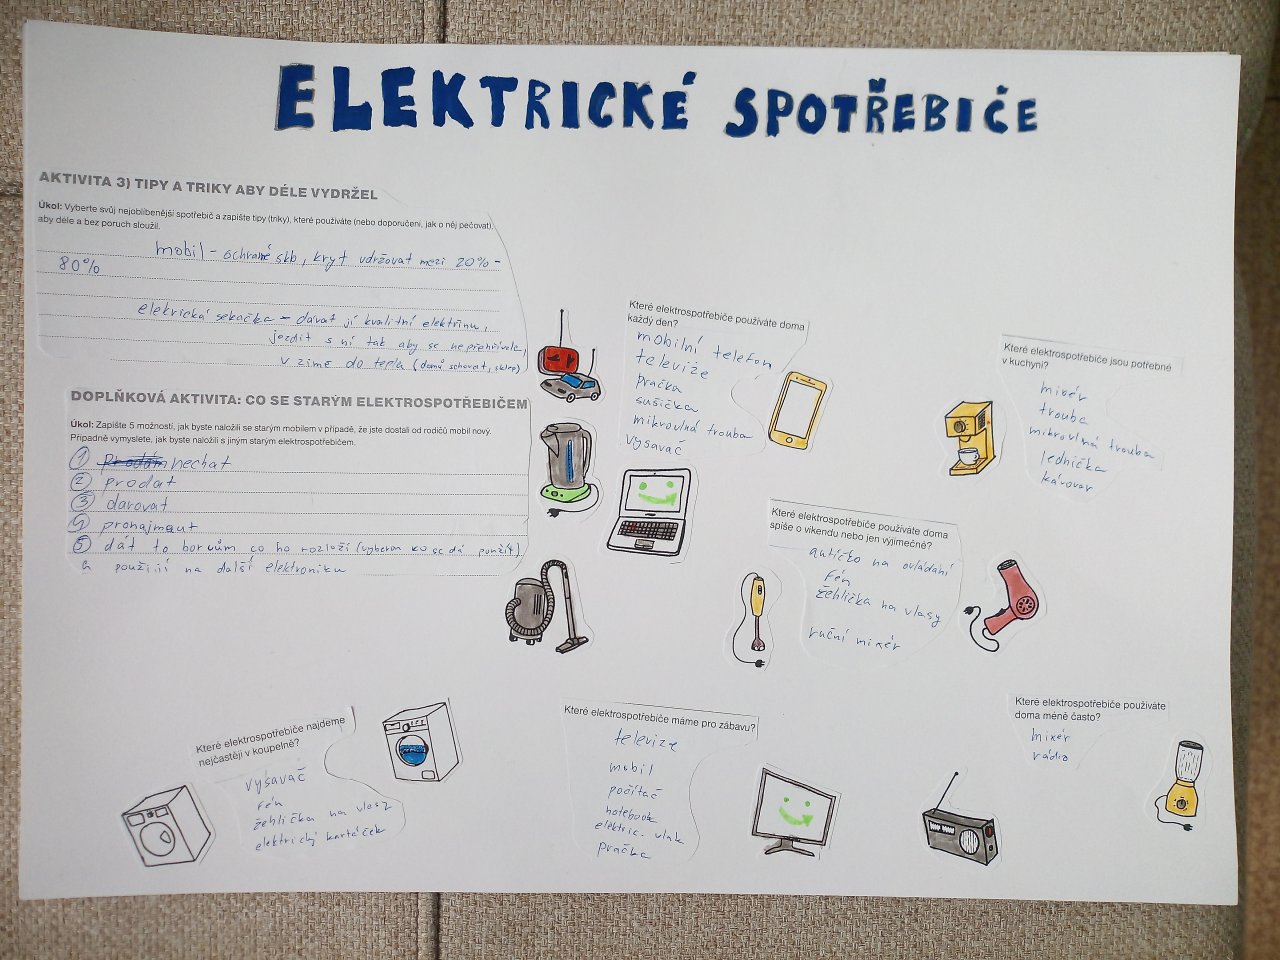 ELEKTRICKÉ SPOTŘEBIČE
AKTIVITA 3) TIPY A TRIKY ABY DÉLE VYDRŽEL
Úkol: Vyberte svůj nejoblíbenější spotřebič a zapište tipy (triky), které používáte (nebo doporučení, jak o něj pečovat),
aby déle a bez poruch sloužil.
mobil - ochrané skb, kryt udržovat mezi 20% -
80%
elekrická sekačka - dávat jí kvalitní elektřinu,
jezdit s ní tak aby se nepřehřívala,
v zimě do tepla (domů schovat, sklep)
DOPLŇKOVÁ AKTIVITA: CO SE STARÝM ELEKTROSPOTŘEBIČEM
Úkol: Zapište 5 možností, jak byste naložili se starým mobilem v případě, že jste dostali od rodičů mobil nový.
Případně vymyslete, jak byste naložili s jiným starým elektrospotřebičem.
① nechat
② prodat
③ darovat
④ pronajmout
⑤ dát to borcům co ho rozloží (vyberou co se dá použít)
a použijí na další elektroniku
Které elektrospotřebiče používáte doma
každý den?
mobilní telefon
televize
pračka
sušička
mikrovlná trouba
vysavač
Které elektrospotřebiče jsou potřebné
v kuchyni?
mixér
trouba
mikrovlná trouba
lednička
kávovar
Které elektrospotřebiče používáte doma
spíše o víkendu nebo jen výjimečně?
autíčko na ovládání
fén
žehlička na vlasy
ruční mixér
Které elektrospotřebiče najdeme
nejčastěji v koupelně?
vysavač
fén
žehlička na vlasy
elektrický kartáček
Které elektrospotřebiče máme pro zábavu?
televize
mobil
počítač
notebook
elektric. vlak
pračka
Které elektrospotřebiče používáte
doma méně často?
mixér
rádio